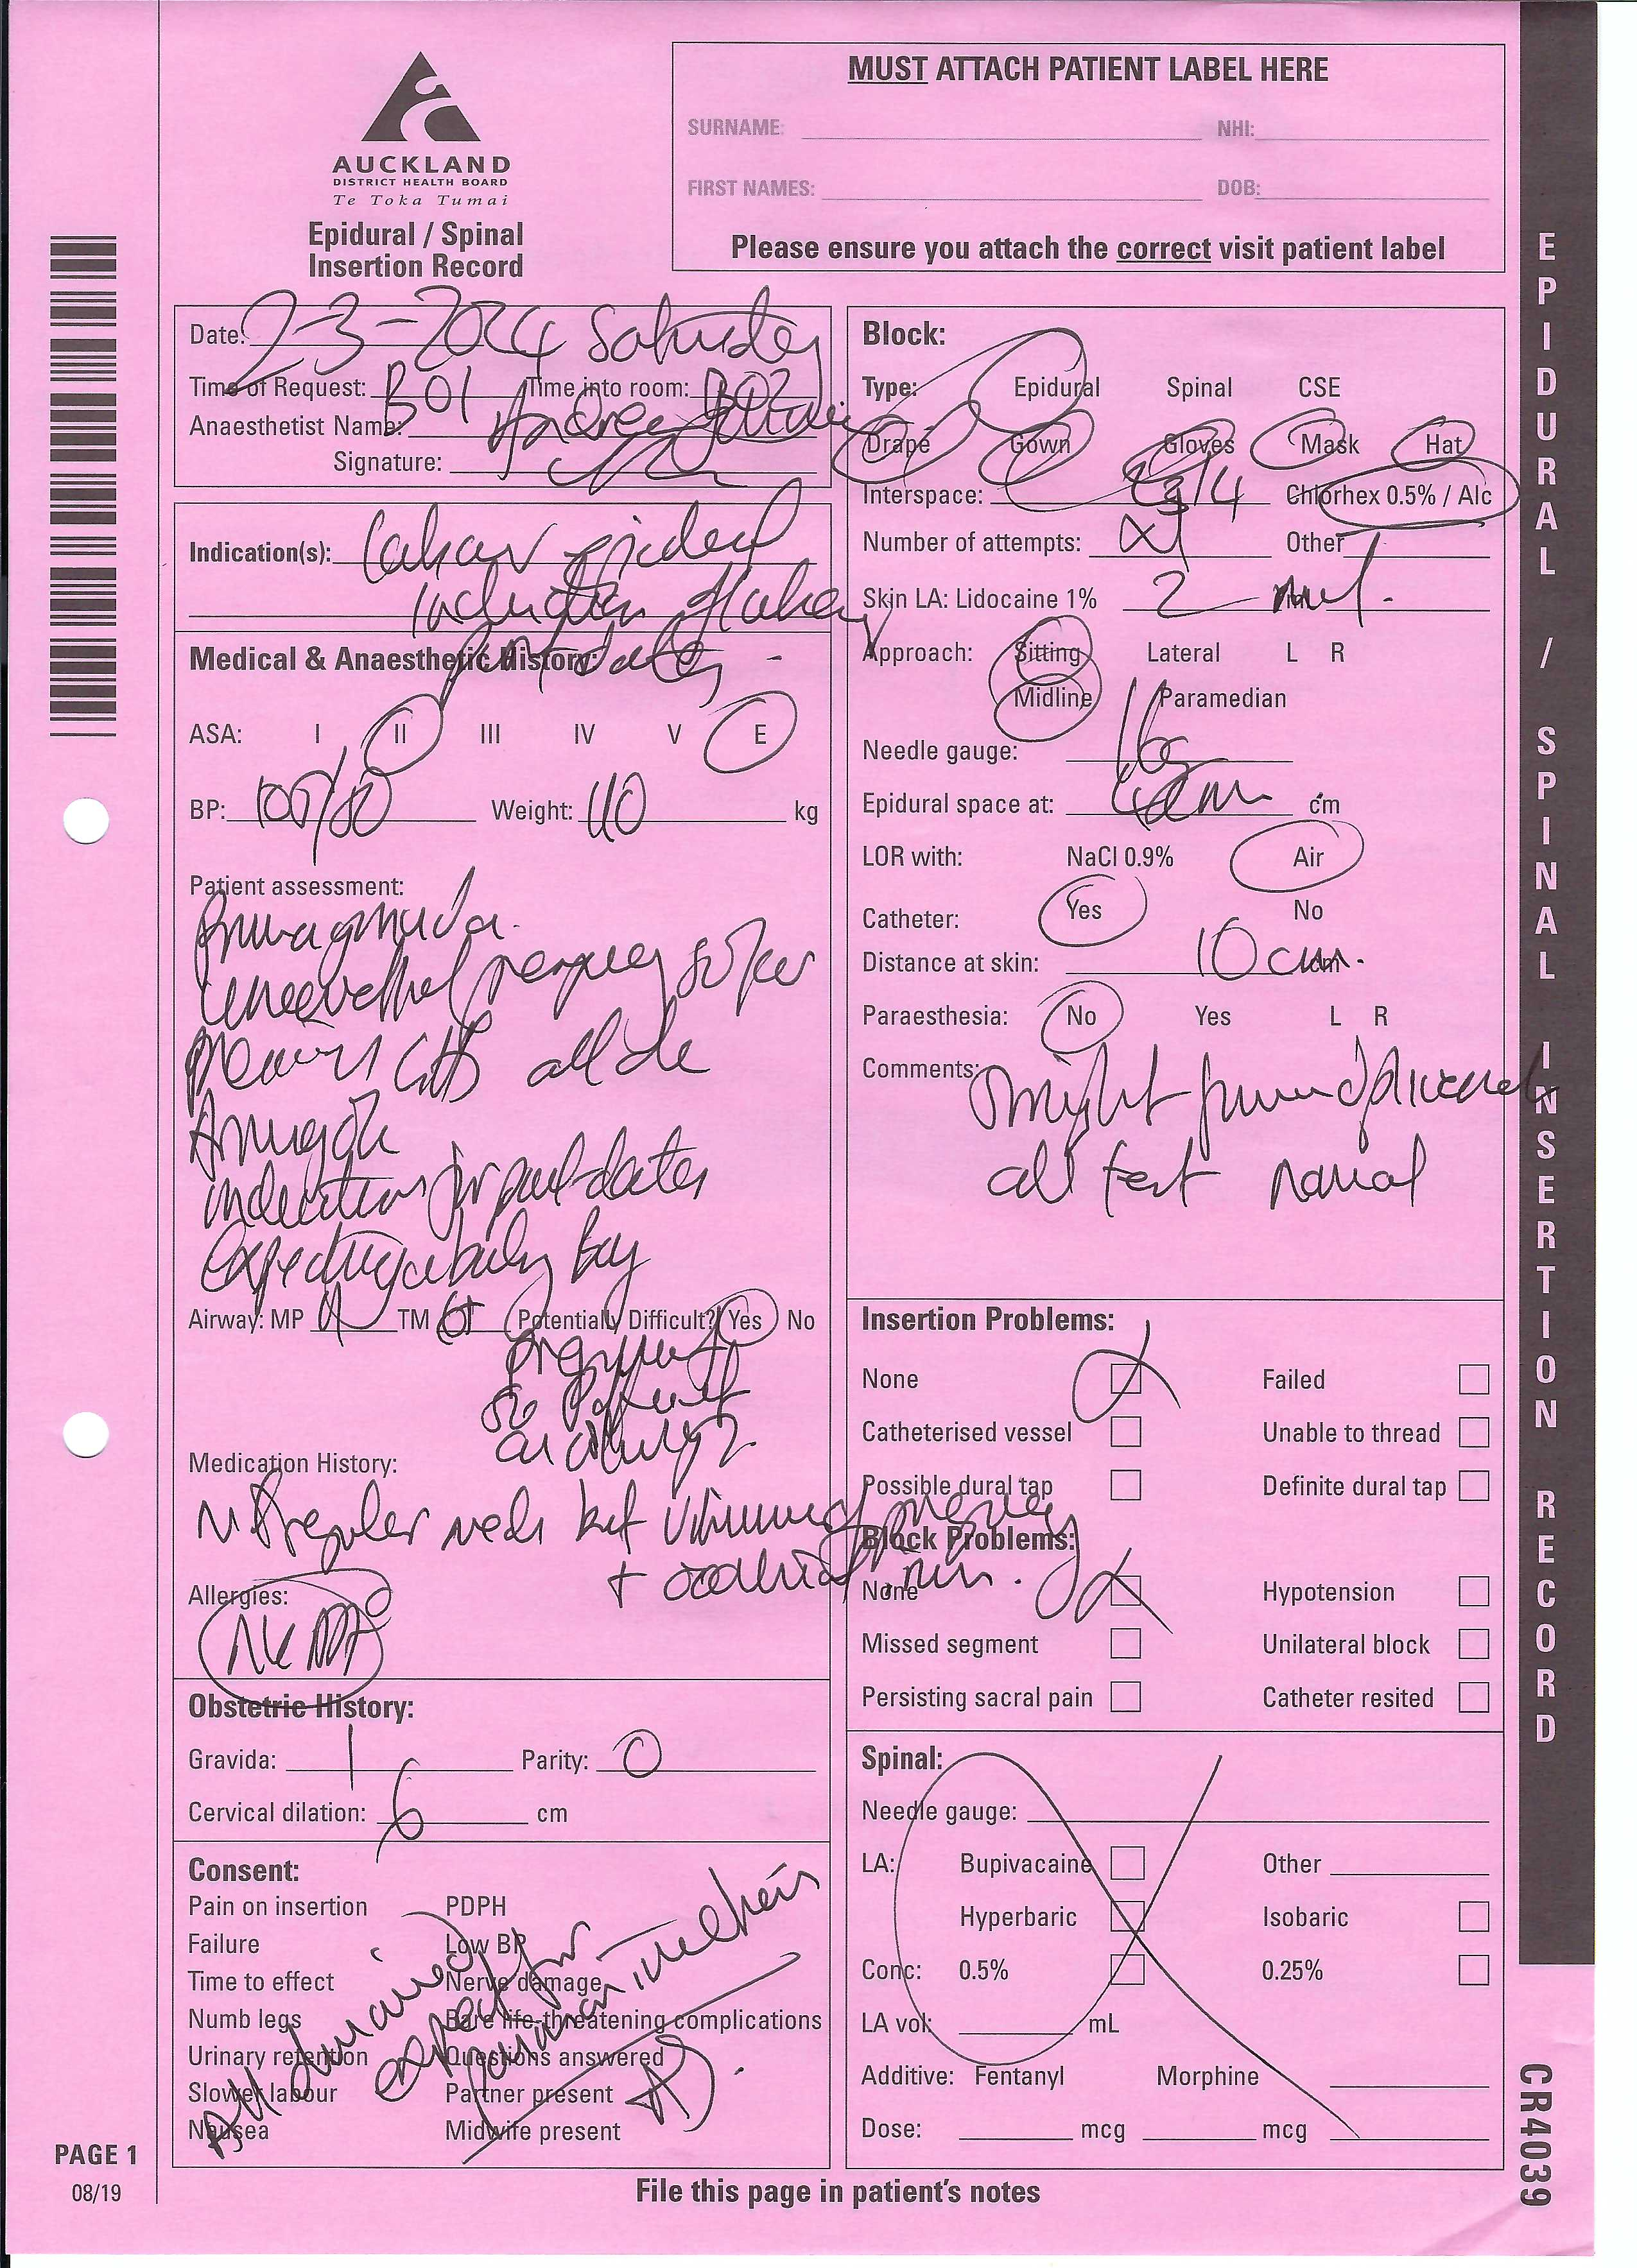 MUST ATTACH PATIENT LABEL HERE
SURNAME: NHI:
FIRST NAMES: DOB:
Please ensure you attach the correct visit patient label
AUCKLAND
DISTRICT HEALTH BOARD
Te Toka Tumai
Epidural / Spinal
Insertion Record
Date: 23-2024 Saturday
Time of Request: 801 Time into room: 802
Anaesthetist Name: Andrea
Signature:
Indication(s): labour epidural
induction of labour
post dates -
Medical & Anaesthetic History:
ASA: I II III IV V E
BP: 100/80 Weight: 110 kg
Patient assessment:
Primagravida.
uneventful pregnancy so far
previous all ok
induction for post dates
Expecting a baby boy
Airway: MP TM 6+ Potentially Difficult? Yes No
pregnant
so potential
Medication History:
regular meds but
+ .
Allergies:
NKDA
Obstetric History:
Gravida: 1 Parity: 0
Cervical dilation: 6 cm
Consent:
Pain on insertion PDPH
Failure Low BP
Time to effect Nerve damage
Numb legs Rare life-threatening complications
Urinary retention Questions answered
Slower labour Partner present
Nausea Midwife present
All
except for
Block:
Type: Epidural Spinal CSE
Drape Gown Gloves Mask Hat
Interspace: L3/4 Chlorhex 0.5% / Alc
Number of attempts: x1 Other
Skin LA: Lidocaine 1% 2 ml.
Approach: Sitting Lateral L R
Midline Paramedian
Needle gauge: 16g
Epidural space at: cm
LOR with: NaCl 0.9% Air
Catheter: Yes No
Distance at skin: 10 cm.
Paraesthesia: No Yes L R
Comments:
all test normal
Insertion Problems:
None Failed
Catheterised vessel Unable to thread
Possible dural tap Definite dural tap
Block Problems:
None Hypotension
Missed segment Unilateral block
Persisting sacral pain Catheter resited
Spinal:
Needle gauge:
LA: Bupivacaine Other
Hyperbaric Isobaric
Conc: 0.5% 0.25%
LA vol: mL
Additive: Fentanyl Morphine
Dose: mcg mcg
EPIDURAL / SPINAL INSERTION RECORD
CR4039
PAGE 1
08/19
File this page in patient's notes